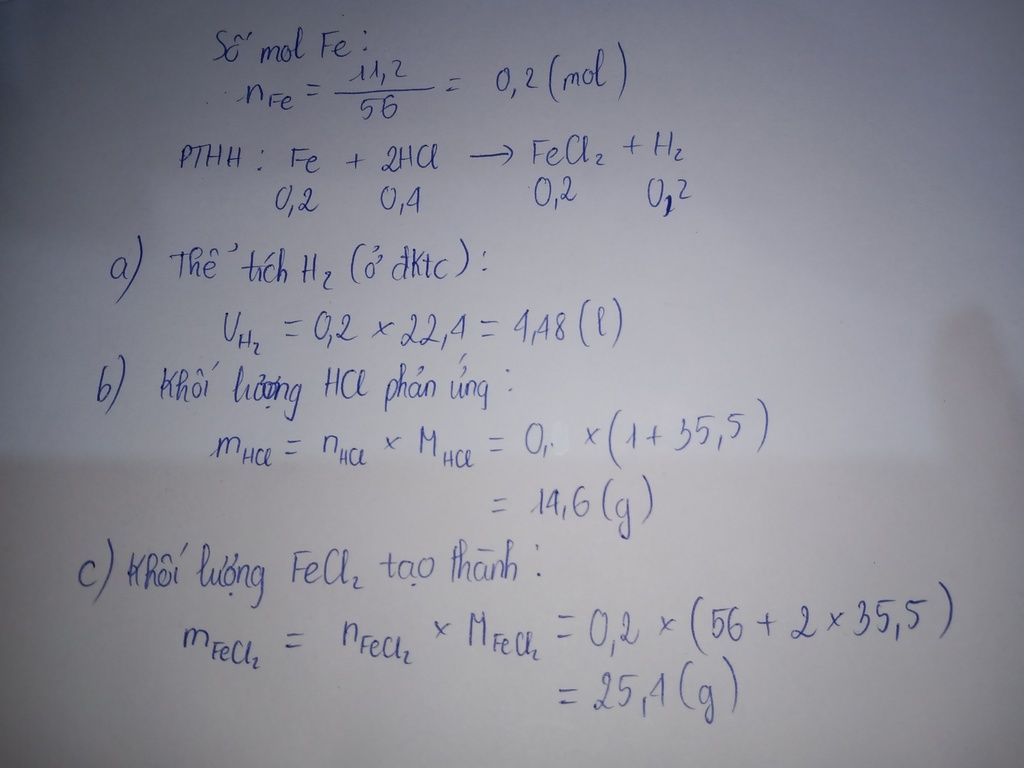 Số mol Fe:
nFe = 11,2/56 = 0,2 (mol)
PTHH: Fe + 2HCl → FeCl₂ + H₂
0,2 0,4 0,2 0,2
a) Thể tích H₂ (ở đktc):
VH₂ = 0,2 × 22,4 = 4,48 (l)
b) Khối lượng HCl phản ứng:
mHCl = nHCl × MHCl = 0, × (1 + 35,5)
= 14,6 (g)
c) Khối lượng FeCl₂ tạo thành:
mFeCl₂ = nFeCl₂ × MFeCl₂ = 0,2 × (56 + 2 × 35,5)
= 25,4 (g)